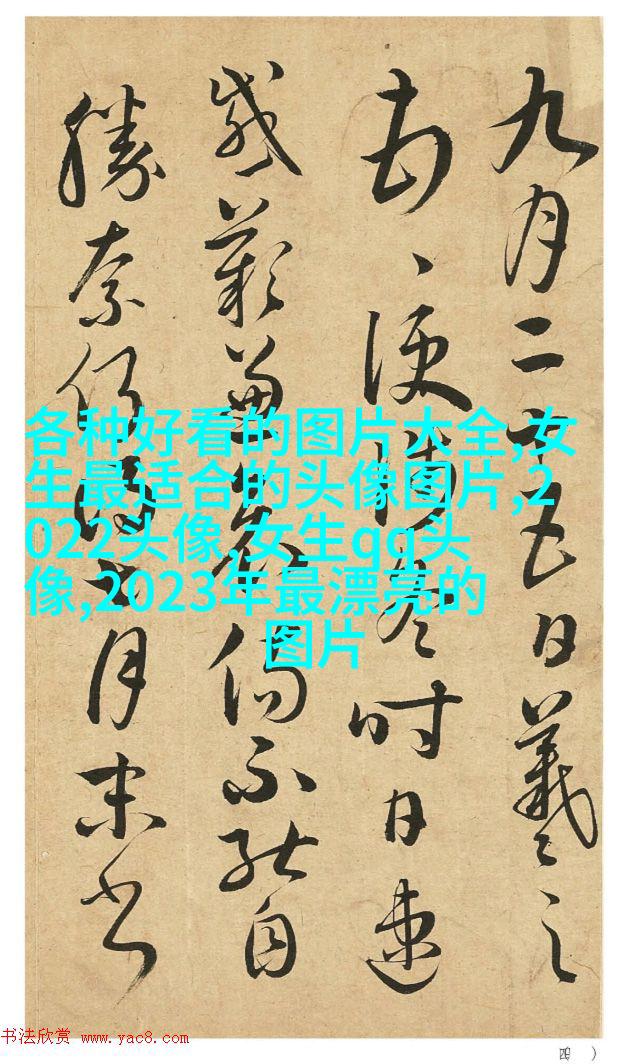 九月二十五日羲之
便陟冬時日速
感歎兼傷不能自
勝奈何得月末書
各种好看的图片大全,女
生最适合的头像图片,2
022头像,女生qq头
像,2023年最漂亮的
图片
书法欣赏 www.yac8.com
四 )